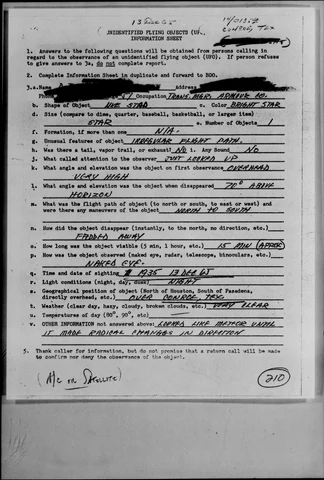 13 Dec 65
UNIDENTIFIED FLYING OBJECTS (UFO)
INFORMATION SHEET
1. Answers to the following questions will be obtained from persons calling in
regard to the observance of an unidentified flying object (UFO). If person refuses
to give answers to 3a, do not complete report.
2. Complete Information Sheet in duplicate and forward to BOO.
3.a. Name
Occupation TRANS. MGR. ARMOUR CO.
b. Shape of Object LIKE STAR c. Color BRIGHT STAR
d. Size (compare to dime, quarter, baseball, basketball, or larger item)
STAR e. Number of Objects 1
f. Formation, if more than one N/A.
g. Unusual features of object IRREGULAR FLIGHT PATH.
h. Was there a tail, vapor trail, or exhaust? NO i. Any Sound NO.
j. What called attention to the observer JUST LOOKED UP
k. What angle and elevation was the object on first observance OVERHEAD
VERY HIGH
l. What angle and elevation was the object when disappeared 70° ABOVE
HORIZON
m. What was the flight path of object (to north or south, to east or west) and
were there any maneuvers of the object NORTH TO SOUTH
n. How did the object disappear (instantly, to the north, no direction, etc.)
FADDED AWAY
o. How long was the object visible (5 min, 1 hour, etc.) 15 MIN (APPROX)
p. How was the object observed (naked eye, radar, telescope, binoculars, etc.)
NAKED EYE.
q. Time and date of sighting 1935 13 DEC 65
r. Light conditions (night, day, dusk) NIGHT
s. Geographical position of object (North of Houston, South of Pasadena,
directly overhead, etc.) OVER CONROE, TEX.
t. Weather (clear day, hazy, cloudy, broken clouds, etc.) VERY CLEAR
u. Temperatures of day (80°, 90°, etc)
v. OTHER INFORMATION not answered above: LOOKED LIKE METEOR UNTIL
IT MADE RADICAL CHANGES IN DIRECTION
5. Thank caller for information, but do not promise that a return call will be made
to confirm nor deny the observance of the object.
(A/c or Satellite)
210